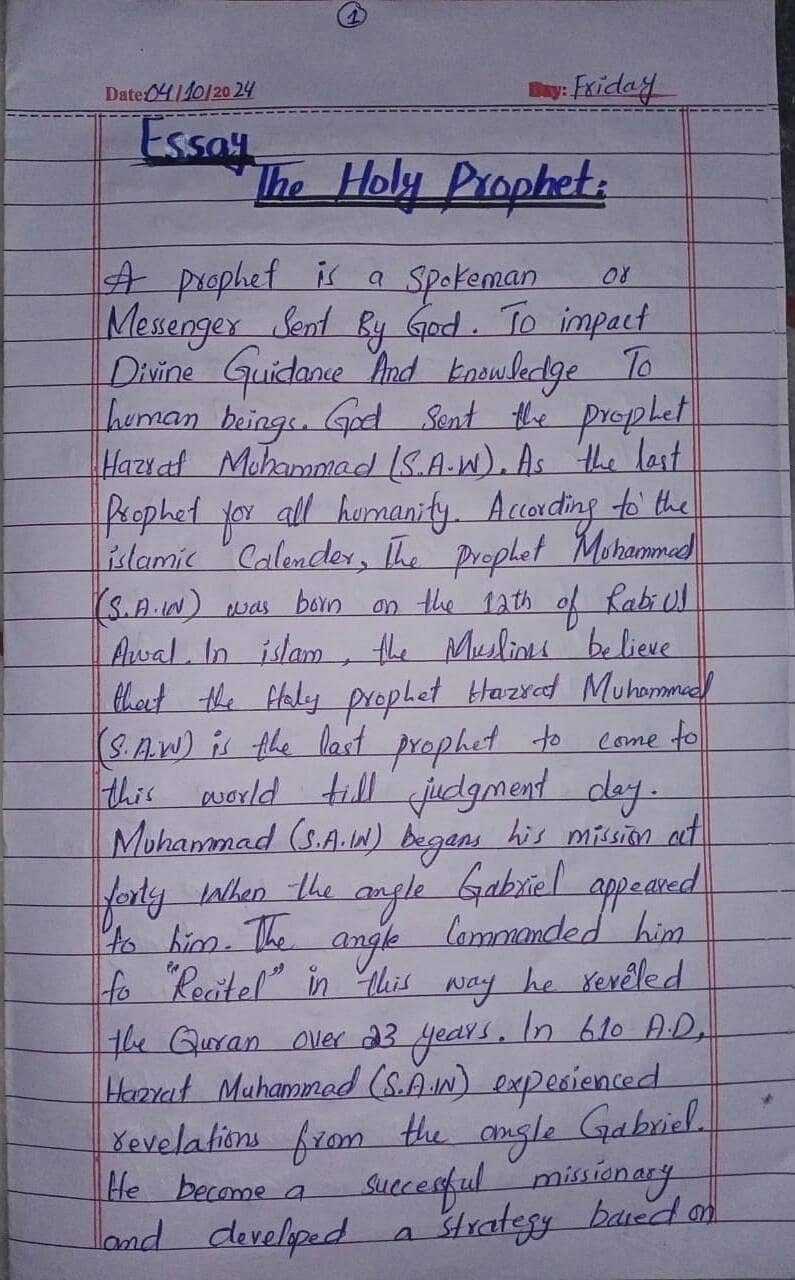 1
Date: 04/10/2024 Day: Friday
Essay
The Holy Prophet:
A prophet is a Spokeman or
Messenger Sent By God. To impact
Divine Guidance And knowledge To
human beings. God Sent the prophet
Hazrat Mohammad (S.A.W). As the last
Prophet for all humanity. According to the
islamic Calender, The prophet Muhammad
(S.A.W) was born on the 12th of Rabi Ul
Awal. In islam, the Muslims believe
that the Holy prophet Hazrat Muhammad
(S.A.W) is the last prophet to come to
this world till judgment day.
Muhammad (S.A.W) begans his mission at
forty When the angle Gabriel appeared
to him. The angle Commanded him
to "Recitel" in this way he reveled
the Quran over 23 years. In 610 A.D,
Hazrat Muhammad (S.A.W) experienced
revelations from the angle Gabriel.
He become a succesful missionary
and developed a strategy based on